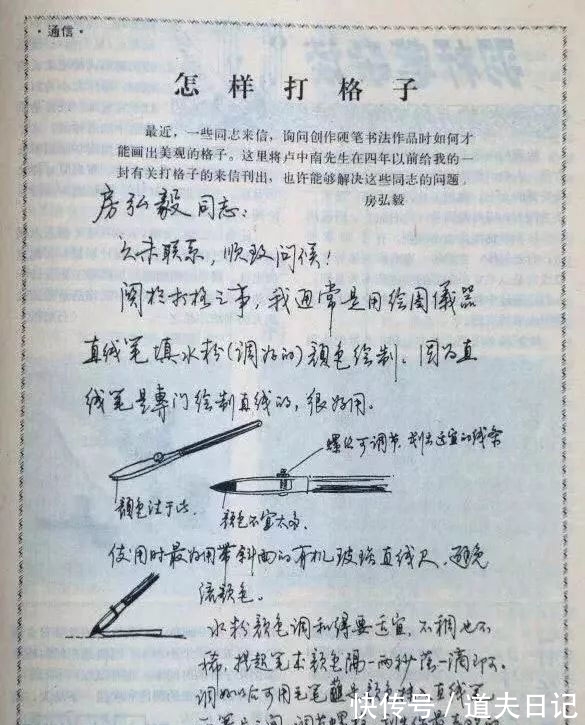 ·通信·
怎样打格子
最近，一些同志来信，询问创作硬笔书法作品时如何才
能画出美观的格子。这里将卢中南先生在四年以前给我的一
封有关打格子的来信刊出，也许能够解决这些同志的问题。
房弘毅
房弘毅同志：
久未联系，顺致问候！
関於打格之事，我通常是用绘图儀器
直线笔填水粉(调好的)颜色绘制。因为直
线笔是專门绘制直线的，很好用。
螺丝可调节，划出适宜的线条
颜色注于此。
颜色不宜太多。
使用时最好用带斜面的有机玻璃直线尺，避免
流颜色。
水粉颜色调和得要适宜，不稠也不
稀，提起笔来颜色隔一两秒落一滴即可。
调好以后可用毛笔蘸
直线笔
快传号／道夫日记